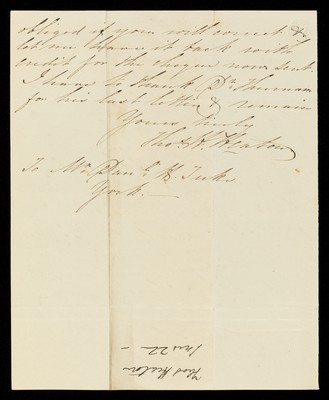 obliged if you will correct &
let me have it back with
credit for the cheque now sent.
I have to thank Dr. Thurnam
for his last letter & remain
Yours truly
Thos. W. Heaton
To Mr. Danl. H. Tuke
York.
Thos Heaton
22